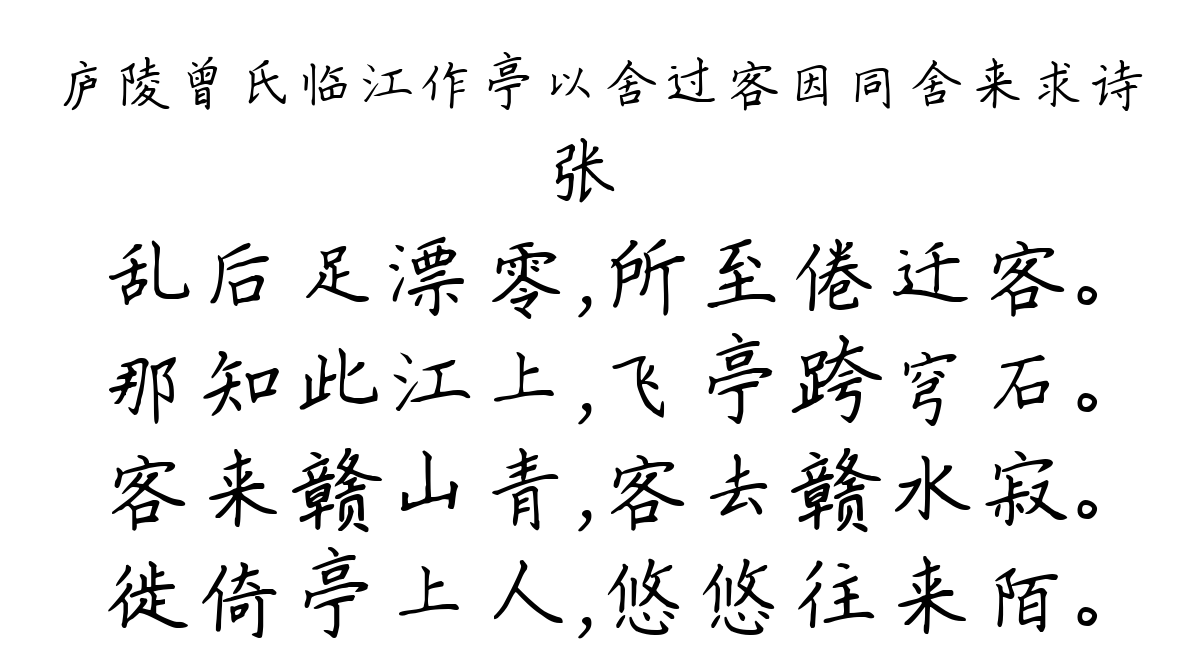 庐陵曾氏临江作亭以舍过客因同舍来求诗
张
乱后足漂零,所至倦迁客。
那知此江上,飞亭跨穹石。
客来赣山青,客去赣水寂。
徙倚亭上人,悠悠往来陌。